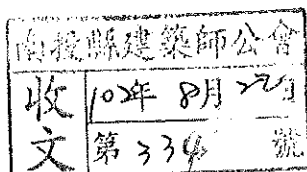 南投縣建築師公會
收文
102年 8月 22日
第 334 號